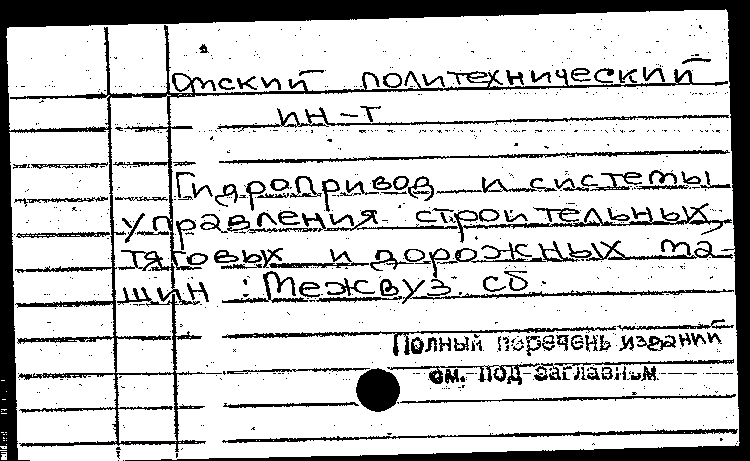 Омский политехнический
ин-т
Гидропривод и системы
управления строительных,
тяговых и дорожных ма-
шин : Межвуз. сб.
Полный перечень изданий
см. под заглавием